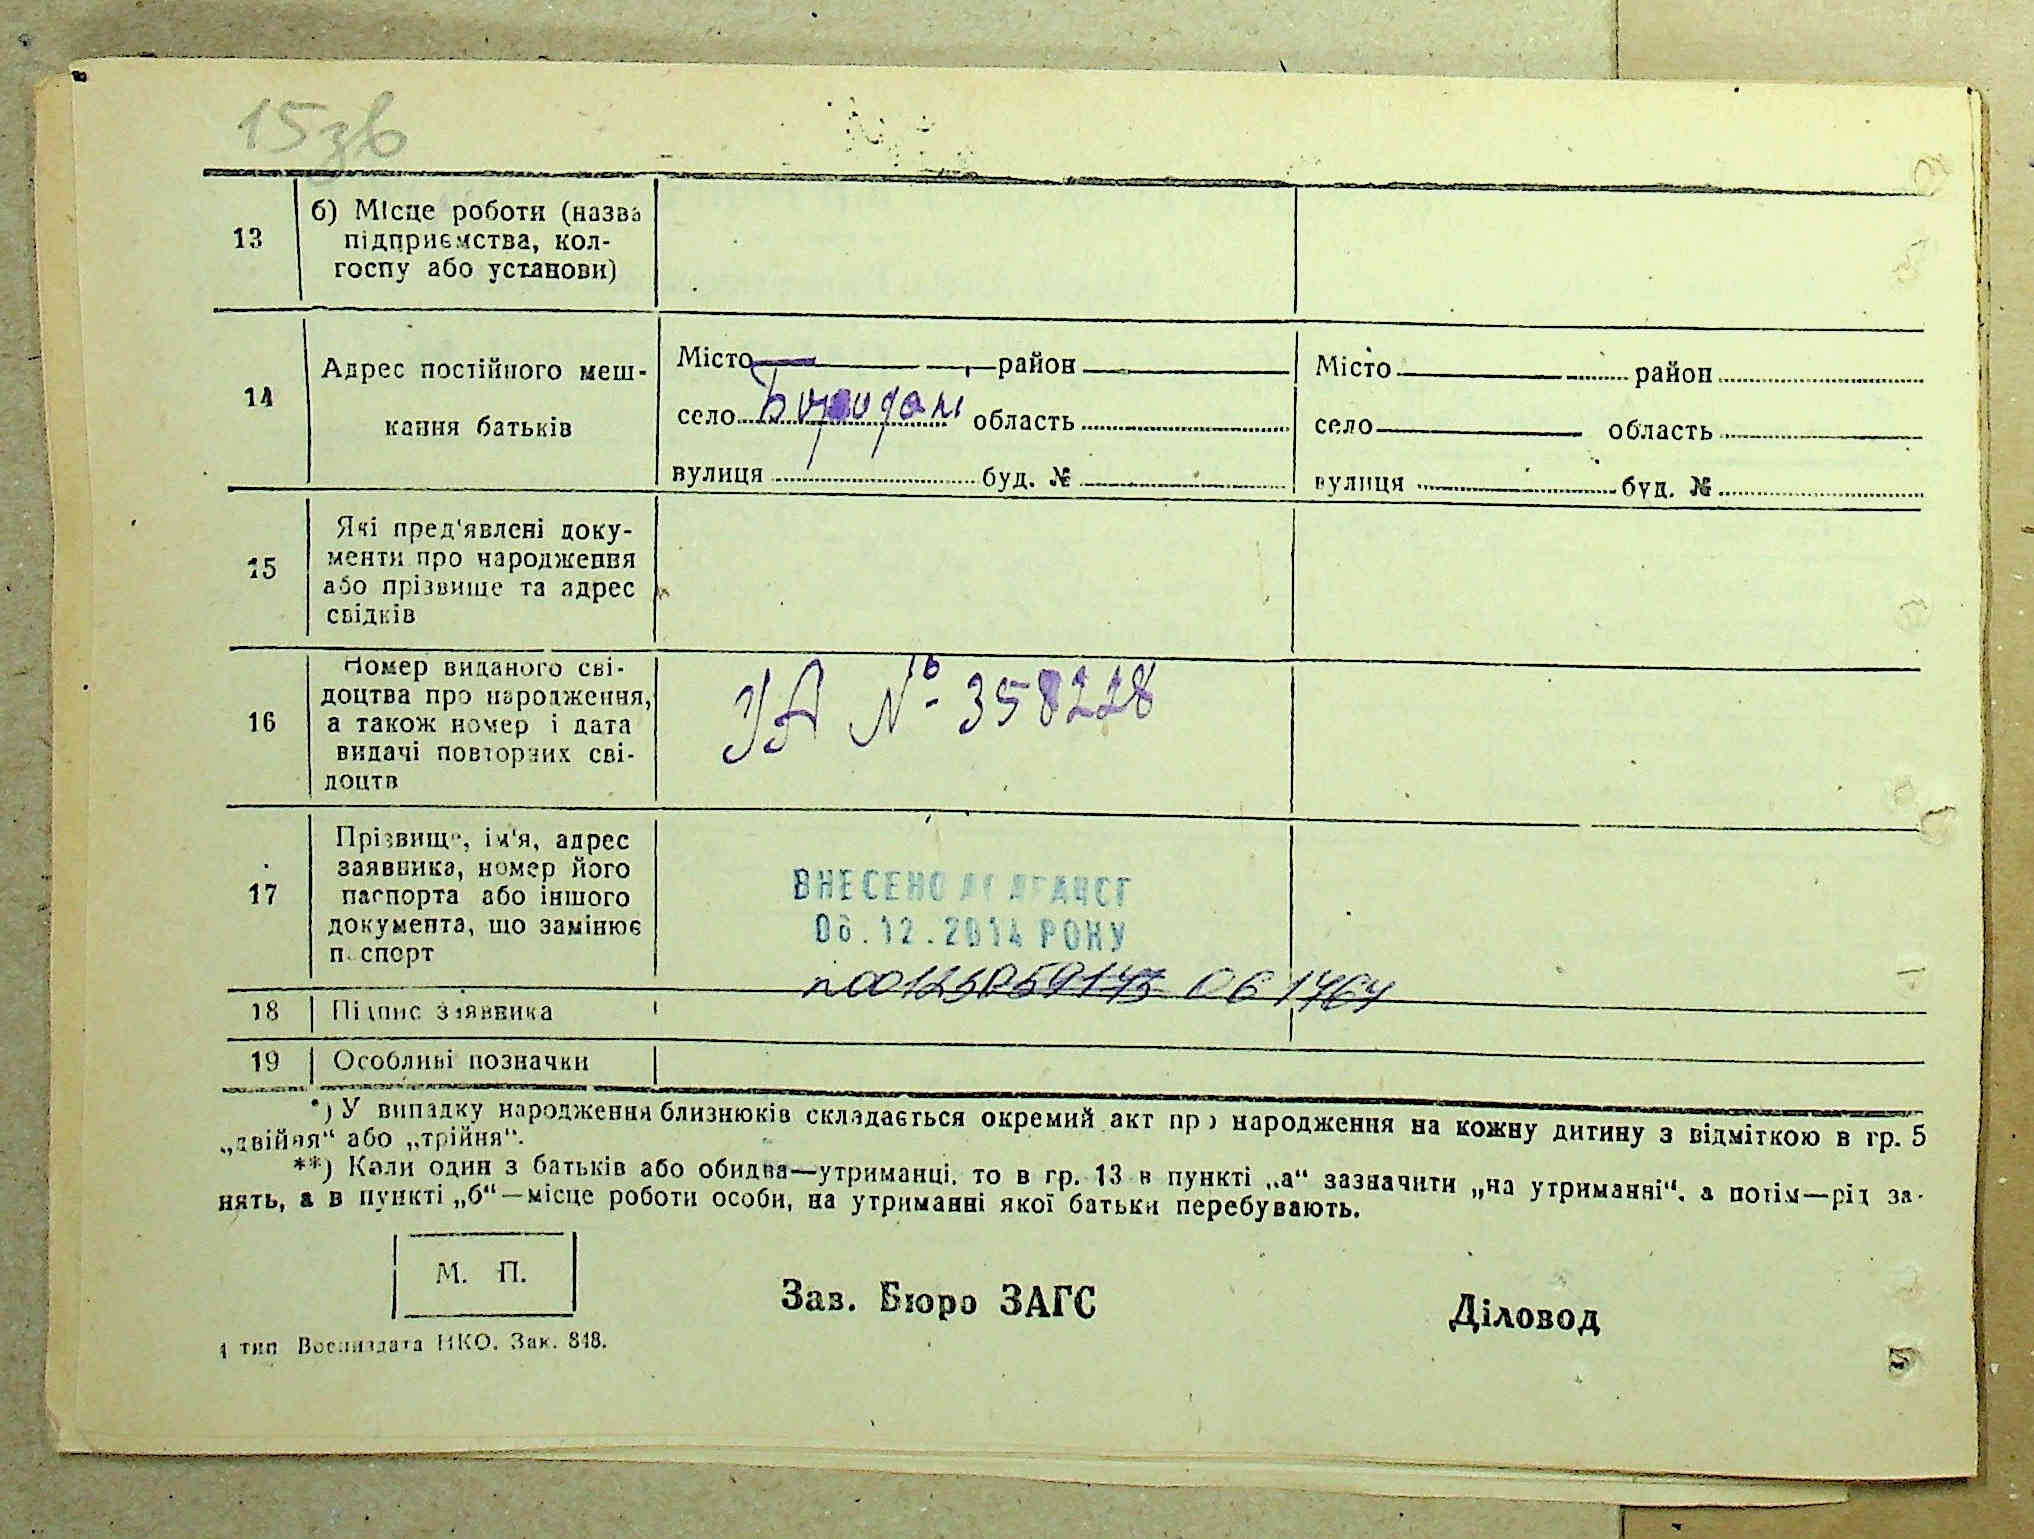 15зв
13
б) Місце роботи (назва
підприємства, кол-
госпу або установи)
14
Адрес постійного меш-
кання батьків
Місто район
село область
вулиця буд. №
Місто район
село область
вулиця буд. №
15
Які пред'явлені доку-
менти про народження
або прізвище та адрес
свідків
16
Номер виданого сві-
доцтва про народження,
а також номер і дата
видачі повторних сві-
доцтв
УА № 358228
17
Прізвище, ім'я, адрес
заявника, номер його
паспорта або іншого
документа, що замінює
паспорт
ВНЕСЕНО ДО ДРАЦСГ
06.12.2014 РОКУ
18 Підпис заявника
19 Особливі позначки
*) У випадку народження близнюків складається окремий акт про народження на кожну дитину з відміткою в гр. 5
„двійня“ або „трійня“.
**) Коли один з батьків або обидва—утриманці, то в гр. 13 в пункті „а“ зазначити „на утриманні“, а потім—рід за-
нять, а в пункті „б“—місце роботи особи, на утриманні якої батьки перебувають.
М. П.
Зав. Бюро ЗАГС
Діловод
1 тип Воениздата НКО. Зак. 848.